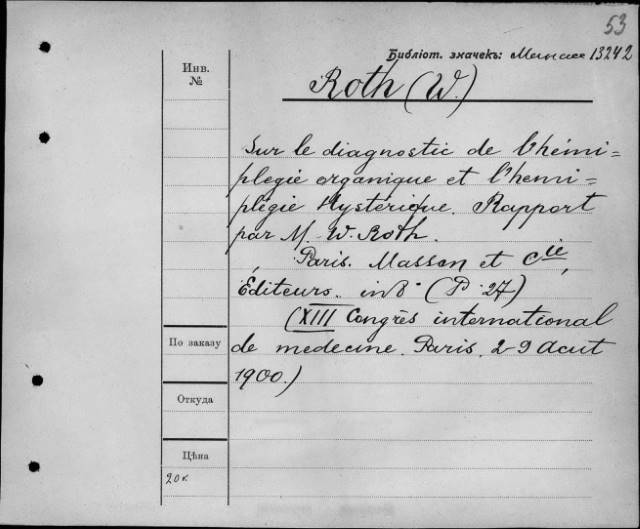 53
Библіот. значекъ: 13242
Инв.
№
Roth (W.)
Sur le diagnostic de l'hémi=
plegie organique et l'hemi=
plégie Hystérique. Rapport
par M. W. Roth.
Paris. Masson et Cie,
Éditeurs. in 8° (P. 27)
(XIII Congrès international
По заказу
de medecine. Paris. 2-9 Aout
1900.)
Откуда
Цѣна
20к